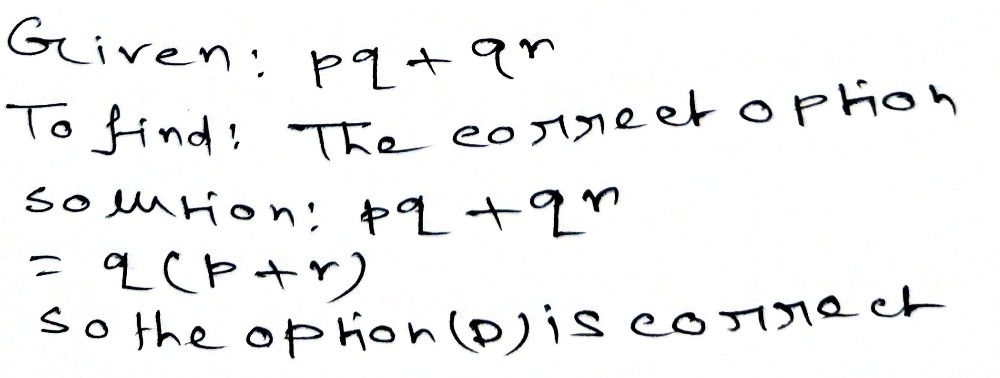 Given: pq + qr
To find: The correct option
solution: pq + qr
= q(p+r)
so the option (D) is correct